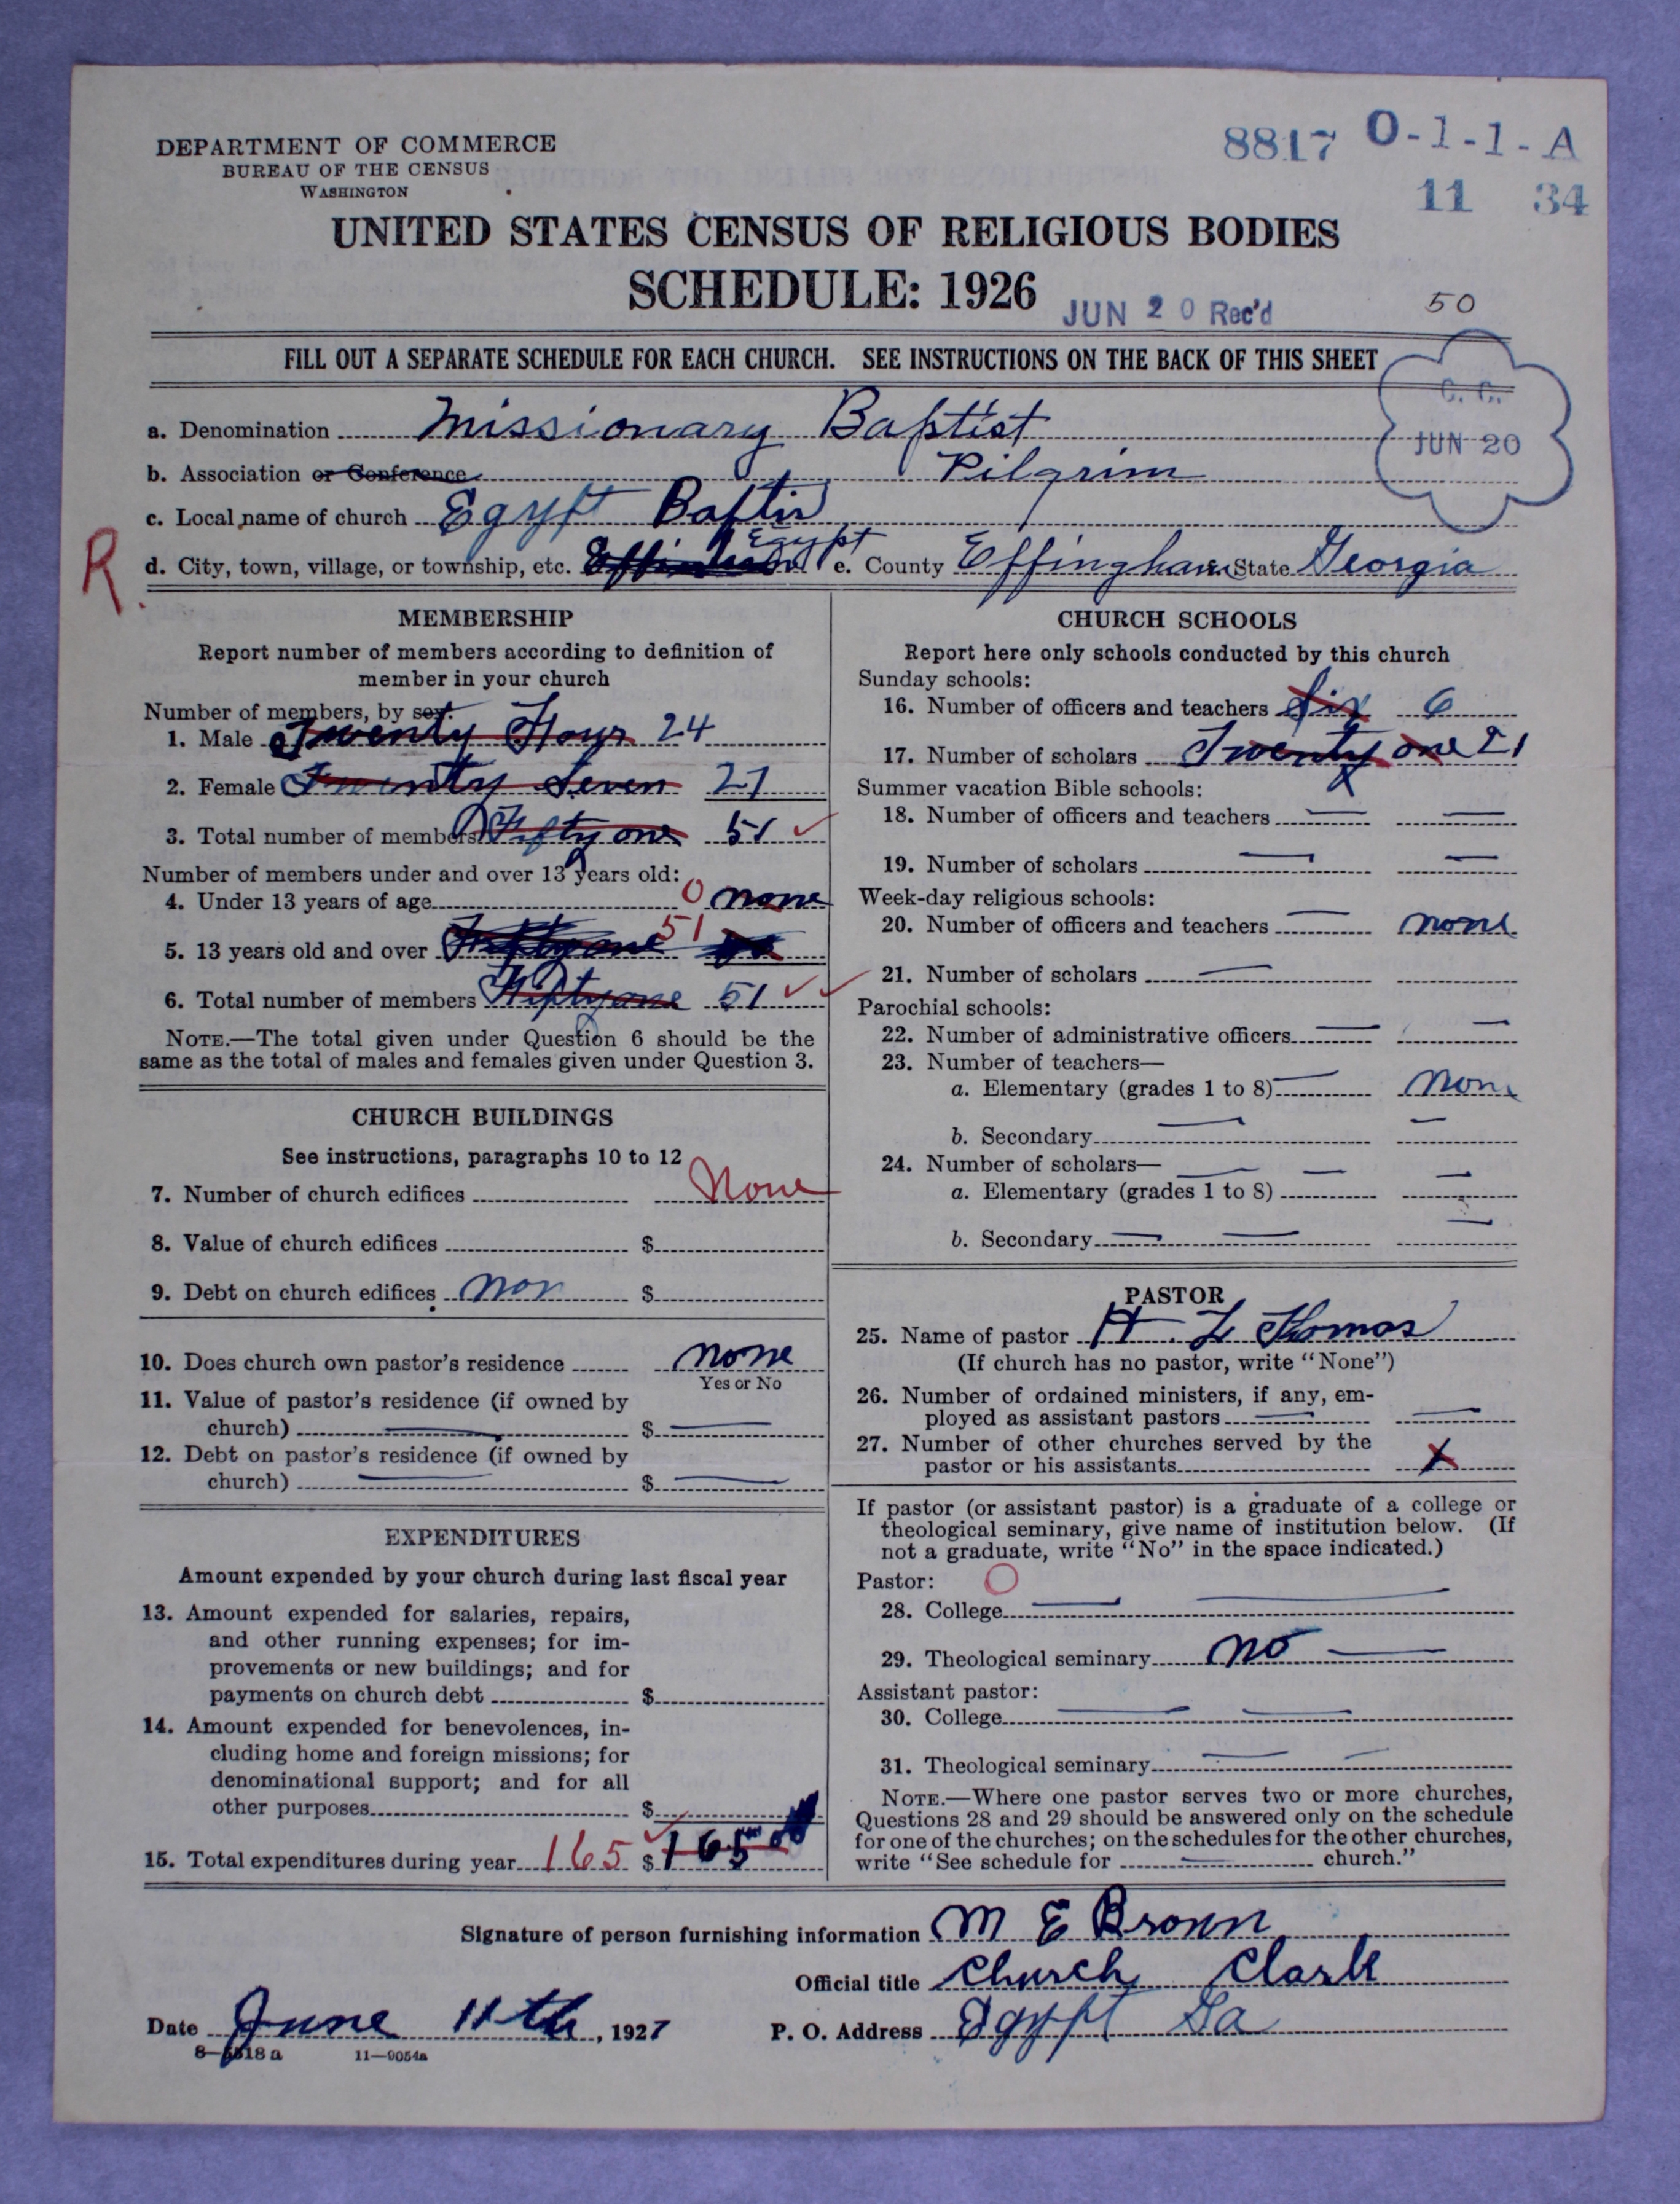 DEPARTMENT OF COMMERCE
BUREAU OF THE CENSUS
WASHINGTON
8817 O-1-1-A
11 34
UNITED STATES CENSUS OF RELIGIOUS BODIES
SCHEDULE: 1926
JUN 20 Rec'd
50
FILL OUT A SEPARATE SCHEDULE FOR EACH CHURCH. SEE INSTRUCTIONS ON THE BACK OF THIS SHEET
C. C.
JUN 20
a. Denomination Missionary Baptist
b. Association or Conference Pilgrim
c. Local name of church Egypt Baptis
R.
d. City, town, village, or township, etc. Egypt e. County Effingham State Georgia
MEMBERSHIP
Report number of members according to definition of
member in your church
Number of members, by sex:
1. Male Twenty Four 24
2. Female Twenty Seven 27
3. Total number of members Fifty one 51 ✓
Number of members under and over 13 years old:
4. Under 13 years of age 0 none
5. 13 years old and over Fifty one 51
6. Total number of members Fifty one 51 ✓✓
NOTE.—The total given under Question 6 should be the
same as the total of males and females given under Question 3.
CHURCH BUILDINGS
See instructions, paragraphs 10 to 12
7. Number of church edifices None
8. Value of church edifices $
9. Debt on church edifices non $
10. Does church own pastor's residence none
Yes or No
11. Value of pastor's residence (if owned by
church) — $ —
12. Debt on pastor's residence (if owned by
church) — $ —
EXPENDITURES
Amount expended by your church during last fiscal year
13. Amount expended for salaries, repairs,
and other running expenses; for im-
provements or new buildings; and for
payments on church debt $
14. Amount expended for benevolences, in-
cluding home and foreign missions; for
denominational support; and for all
other purposes $
15. Total expenditures during year 165 ✓ $ 165
CHURCH SCHOOLS
Report here only schools conducted by this church
Sunday schools:
16. Number of officers and teachers Six 6
17. Number of scholars Twenty one 21
Summer vacation Bible schools:
18. Number of officers and teachers — —
19. Number of scholars — —
Week-day religious schools:
20. Number of officers and teachers — none
21. Number of scholars —
Parochial schools:
22. Number of administrative officers — —
23. Number of teachers—
a. Elementary (grades 1 to 8) — Non
b. Secondary — —
24. Number of scholars— — — —
a. Elementary (grades 1 to 8)
b. Secondary — — —
PASTOR
25. Name of pastor H. L Thomas
(If church has no pastor, write "None")
26. Number of ordained ministers, if any, em-
ployed as assistant pastors — —
27. Number of other churches served by the
pastor or his assistants X
If pastor (or assistant pastor) is a graduate of a college or
theological seminary, give name of institution below. (If
not a graduate, write "No" in the space indicated.)
Pastor: O
28. College — —
29. Theological seminary no —
Assistant pastor:
30. College — —
31. Theological seminary — —
NOTE.—Where one pastor serves two or more churches,
Questions 28 and 29 should be answered only on the schedule
for one of the churches; on the schedules for the other churches,
write "See schedule for — church."
Signature of person furnishing information M E Brown
Official title Church Clark
Date June 11th, 1927
P. O. Address Egypt Ga
8—5518 a 11—9054a